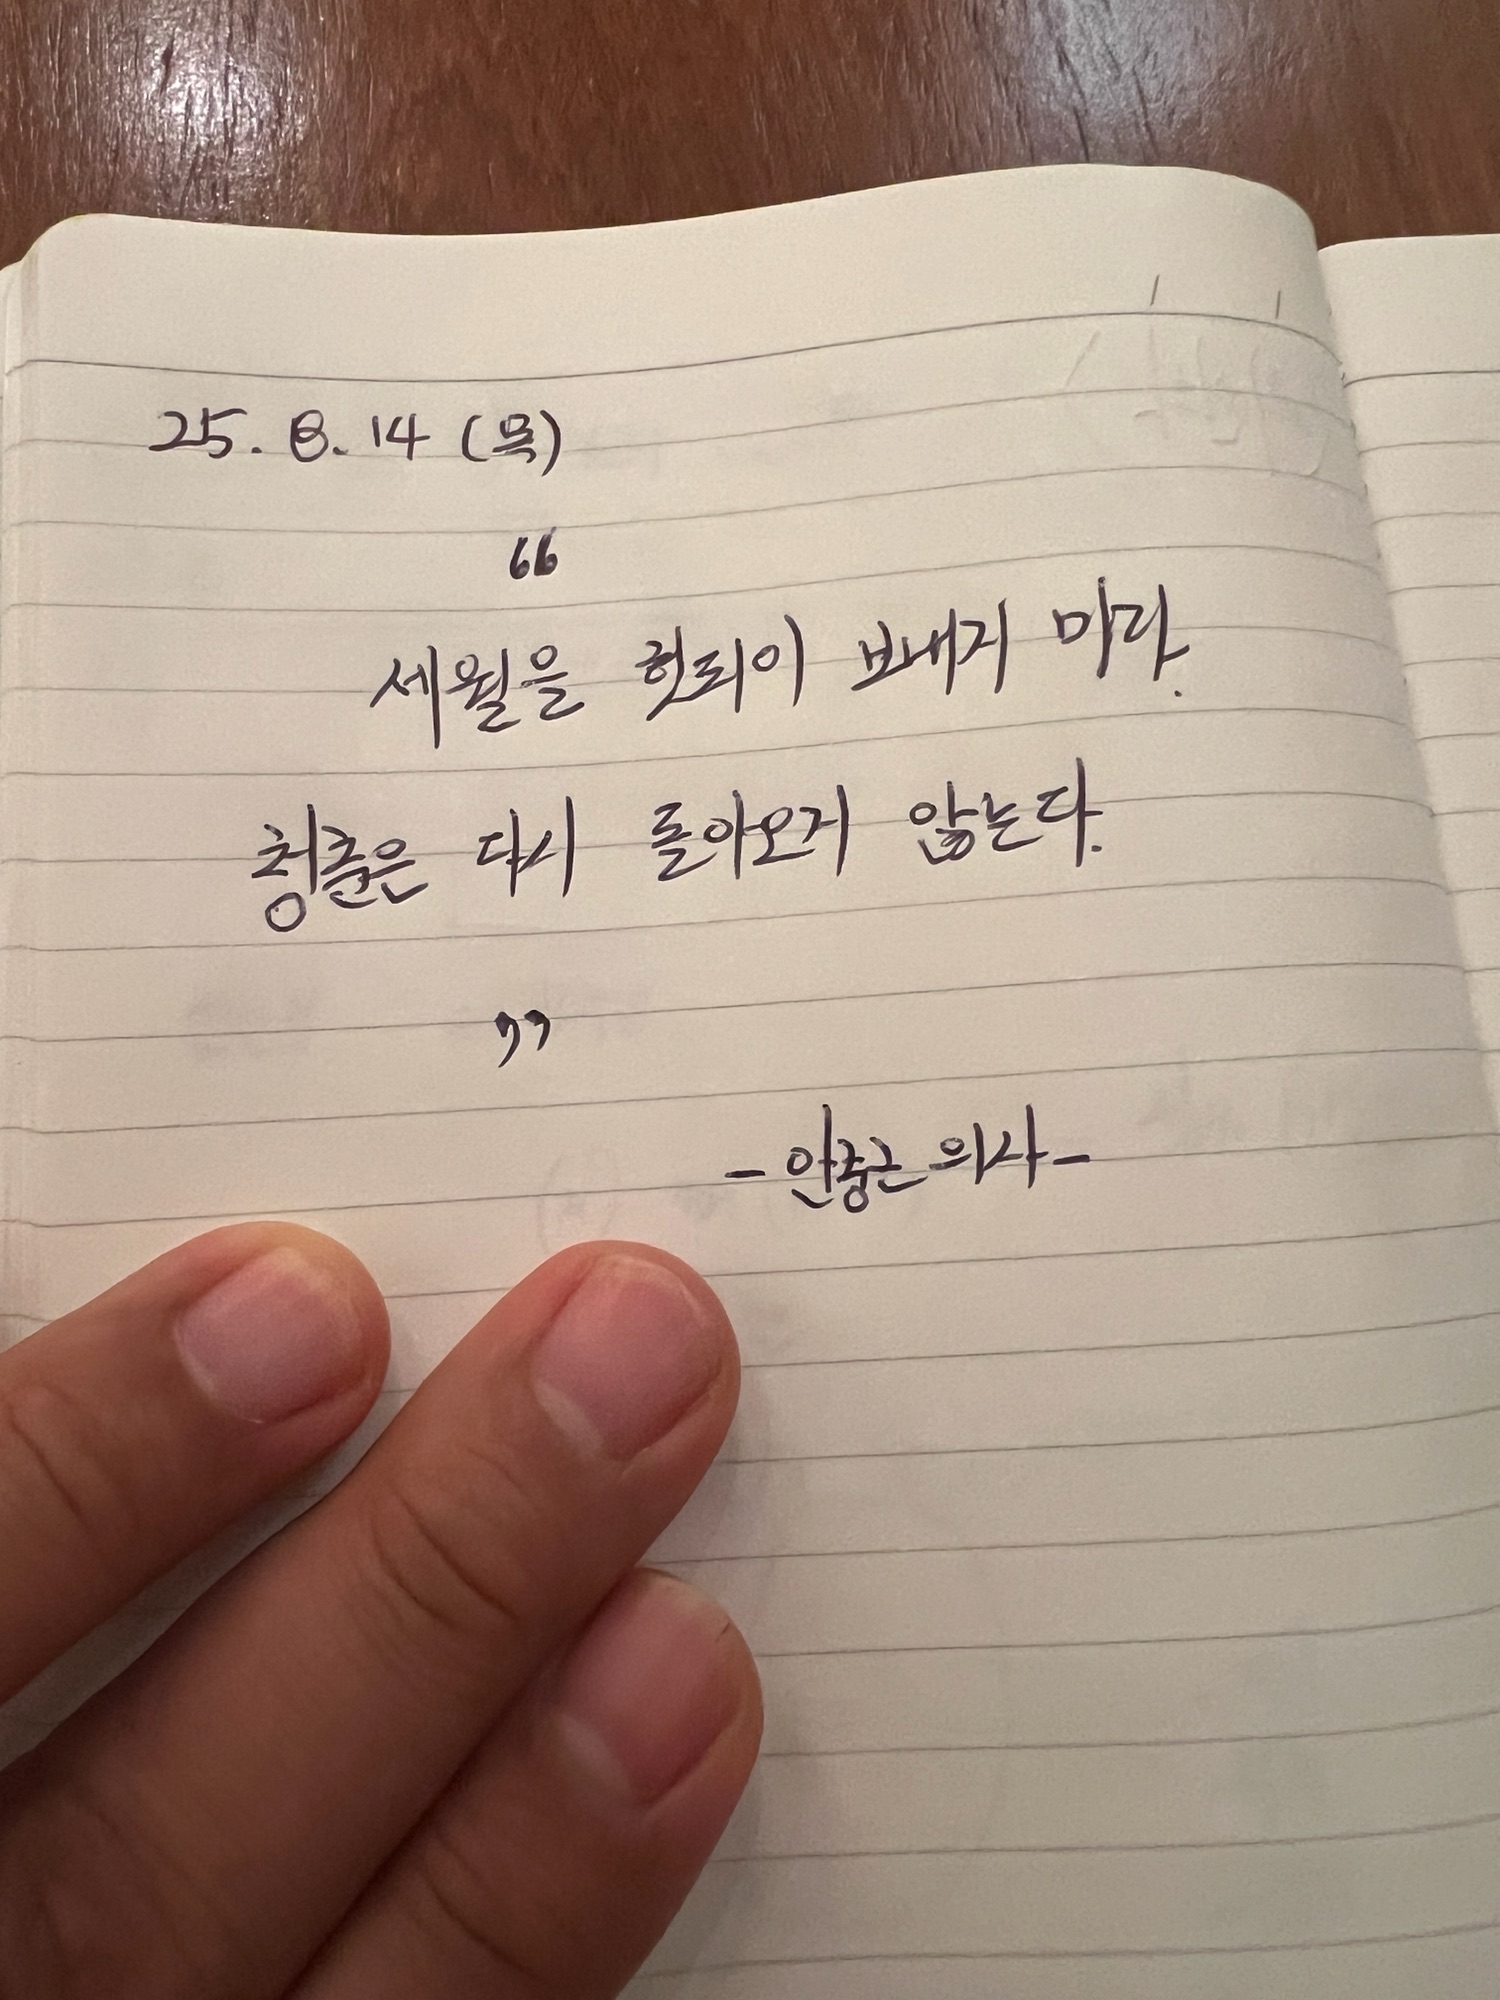 25. 8. 14 (목)
“
세월을 헛되이 보내지 마라.
청춘은 다시 돌아오지 않는다.
”
- 안중근 의사 -